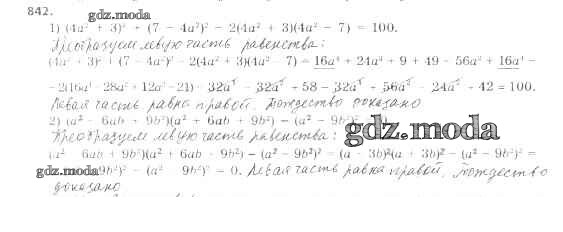 842.
gdz.moda
1) (4a² + 3)² + (7 − 4a²)² − 2(4a² + 3)(4a² − 7) = 100.
Преобразуем левую часть равенства:
(4a² + 3)² + (7 − 4a²)² − 2(4a² + 3)(4a² − 7) = 16a⁴ + 24a² + 9 + 49 − 56a² + 16a⁴ −
− 2(16a⁴ − 28a² + 12a² − 21) = 32a⁴ − 32a² + 58 − 32a⁴ + 56a² − 24a² + 42 = 100.
Левая часть равна правой. Тождество доказано
2) (a² − 6ab + 9b²)(a² + 6ab + 9b²) − (a² − 9b²)²
gdz.moda
Преобразуем левую часть равенства:
(a² − 6ab + 9b²)(a² + 6ab + 9b²) − (a² − 9b²)² = (a − 3b)²(a + 3b)² − (a² − 9b²)² =
gdz.moda 9b²)² − (a² − 9b²)² = 0. Левая часть равна правой. Тождество
доказано